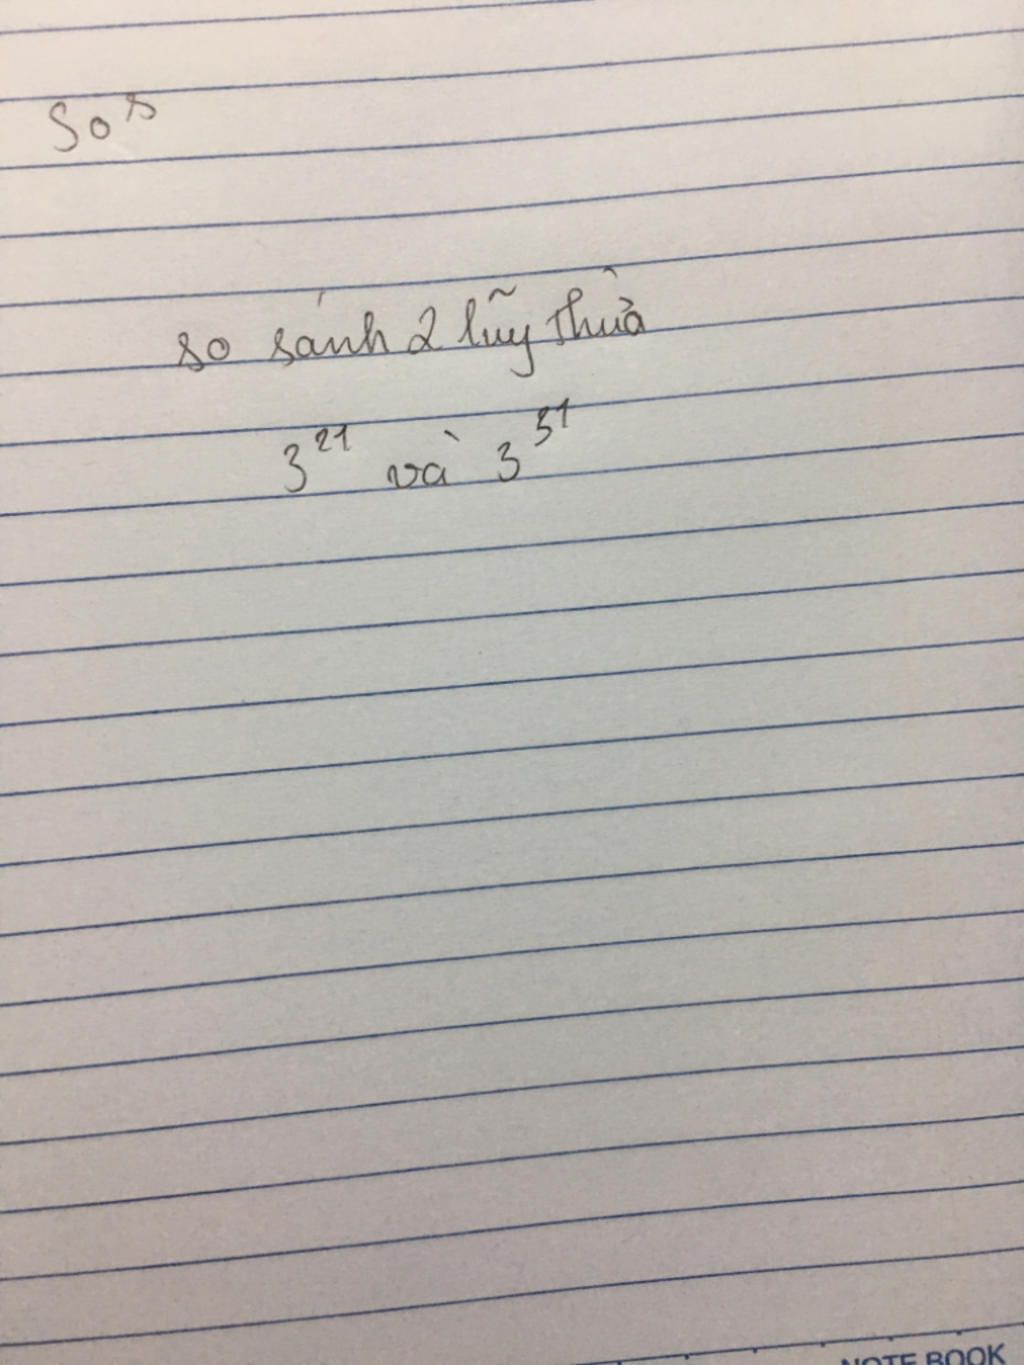 Sos
so sánh 2 lũy thừa
3²¹ và 3³¹
NOTE BOOK